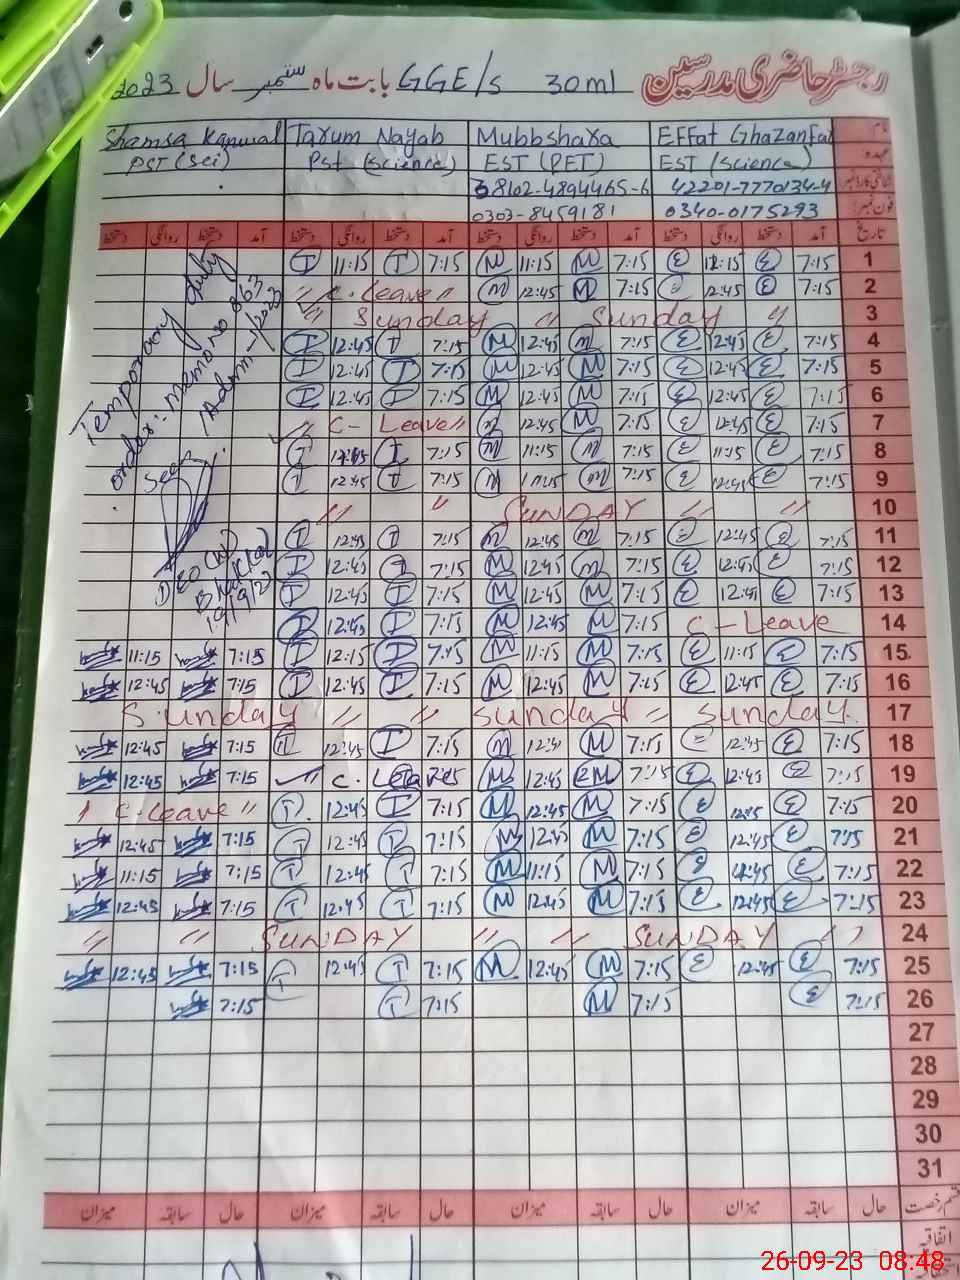 رجسٹر حاضری مدرسین 30ml GGE/s بابت ماہ ستمبر سال 2023
نام EFFat Ghazanfar Mubbshara Tarum Nayab Shamsa Kanwal
عہدہ EST (science) EST (PET) Pst (science) PST (sei)
شناختی کارڈ نمبر 42201-7770134-4 38102-4894465-6
فون نمبر 0340-0175293 0303-8459181
تاریخ آمد دستخط روانگی دستخط آمد دستخط روانگی دستخط آمد دستخط روانگی دستخط آمد دستخط روانگی دستخط
1 7:15 E 12:15 E 7:15 M 11:15 M 7:15 I 11:15 I
2 7:15 E 12:45 E 7:15 M 12:45 M C. Leave
3 " Sunday " Sunday "
4 7:15 E 12:45 E 7:15 M 12:45 M 7:15 I 12:45 I
5 7:15 E 12:45 E 7:15 M 12:45 M 7:15 I 12:45 I
6 7:15 E 12:45 E 7:15 M 12:45 M 7:15 I 12:45 I
7 7:15 E 12:45 E 7:15 M 12:45 M " C- Leave "
8 7:15 E 11:15 E 7:15 M 11:15 M 7:15 I I
9 7:15 E 12:45 E 7:15 M 11:15 M 7:15 I 12:45 I
10 " " SUNDAY " "
11 7:15 E 12:45 E 7:15 M 12:45 M 7:15 I 12:45 I
12 7:15 E 12:45 E 7:15 M 12:45 M 7:15 I 12:45 I
13 7:15 E 12:45 E 7:15 M 12:45 M 7:15 I 12:45 I
14 C - Leave 7:15 M 12:45 M 7:15 I 12:45 I
Temporary duty
order:- memo No 863
/Admn-1/2023
Seen
DEO (W)
19/9/23
15 7:15 E 11:15 E 7:15 M 11:15 M 7:15 I 12:15 I 7:15 11:15
16 7:15 E 12:45 E 7:15 M 12:45 M 7:15 I 12:45 I 7:15 12:45
17 Sunday " " Sunday " Sunday
18 7:15 E 12:45 E 7:15 M 12:4 M 7:15 I 12:45 7:15 12:45
19 7:15 E 12:45 E 7:15 M 12:45 M C. Leave 7:15 12:45
20 7:15 E E 7:15 M 12:45 M 7:15 I 12:45 I C-Leave "
21 7:15 E 12:45 E 7:15 M 12:45 M 7:15 I 12:45 I 7:15 12:45
22 7:15 E E 7:15 M 11:15 M 7:15 I 12:45 I 7:15 11:15
23 7:15 E 12:45 E 7:15 M 12:45 M 7:15 I 12:45 I 7:15 12:45
24 " " SUNDAY " " SUNDAY "
25 7:15 E 12:45 E 7:15 M 12:45 M 7:15 I 12:45 I 7:15 12:45
26 7:15 E 7:15 M 7:15 I 7:15
27
28
29
30
31
قسم رخصت حال سابقہ میزان حال سابقہ میزان حال سابقہ میزان حال سابقہ میزان
اتفاقیہ
26-09-23 08:48